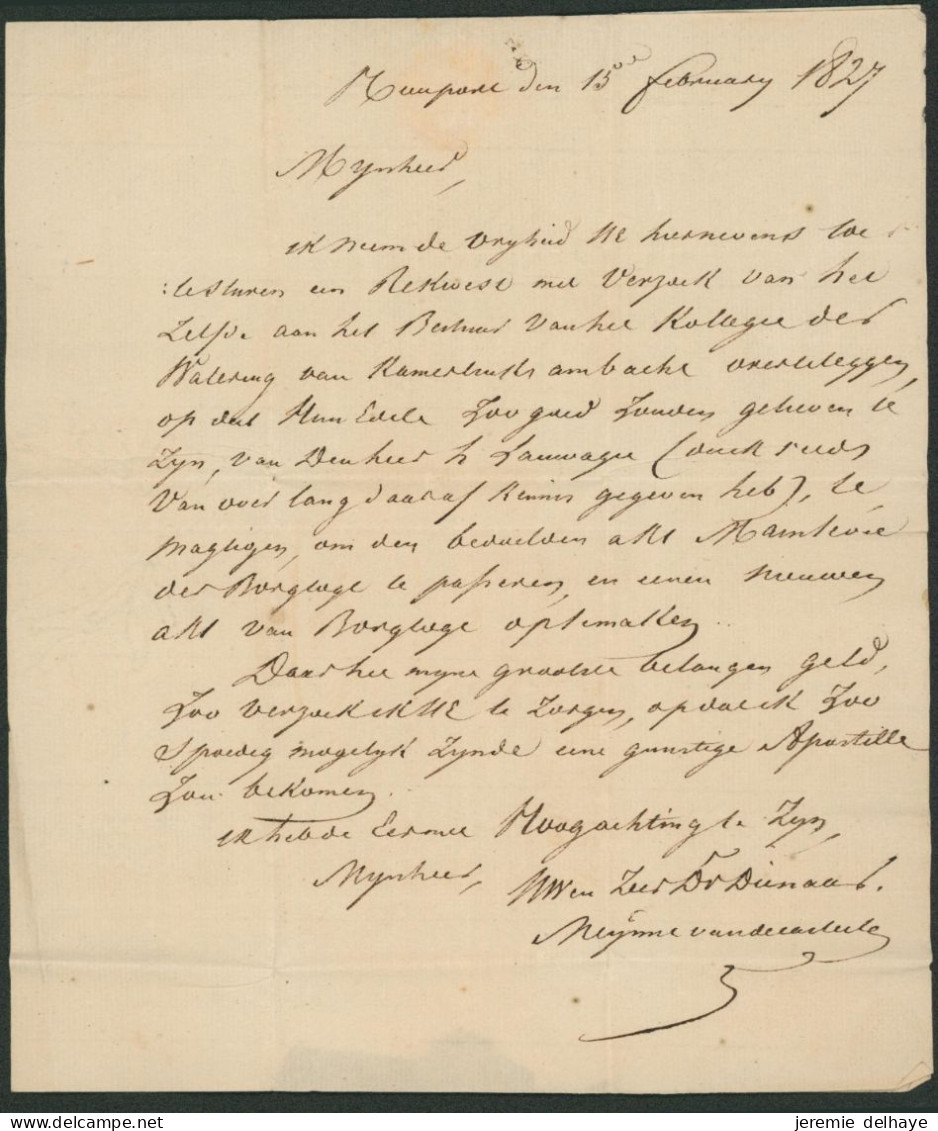 Nieuport den 15de february 1827
Mynheer,
ik neem de vryheid UE hiernevens toe
:te sturen een Rekwest met Verzoek van het
Zelfde aan het Bestuur van het Kollegie der
Watering van Kamerlinks ambacht overteleggen,
op dat Hun Edele Zoo goed Zouden gelieven te
Zyn, van Den heer h Lauwagie (ouck reeds
Van over lang daar af kennis gegeven heb), te
magtigen, om den bevoelden akt Mainlevée
der Borgtogt te passeren, en eenen nieuwen
akt van Borgtogt optemaken.
Daar het myne grootste belangen geld,
Zoo verzoek ik UE te Zorgen, op dat ik Zoo
Spoedig mogelyk Zynde eene gunstige Apostille
Zou bekomen.
ik heb de Eer met Hoogachting te Zyn,
Mynheer,
UWen Zeer Dr Dienaar.
Meynne vandecasteele
jeremie delhaye